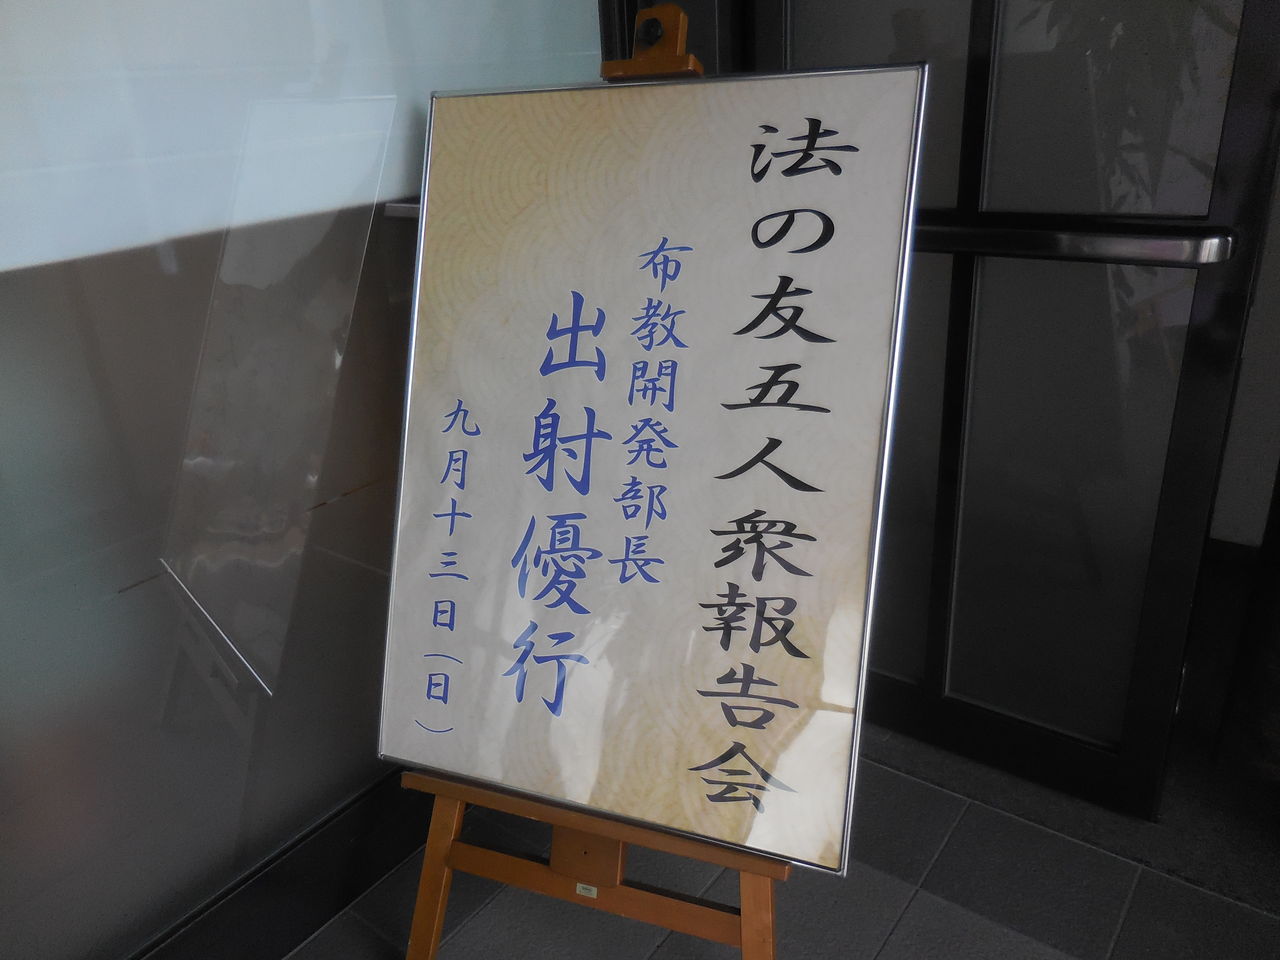 法の友五人衆報告会
布教開発部長
出射優行
九月十三日(日)